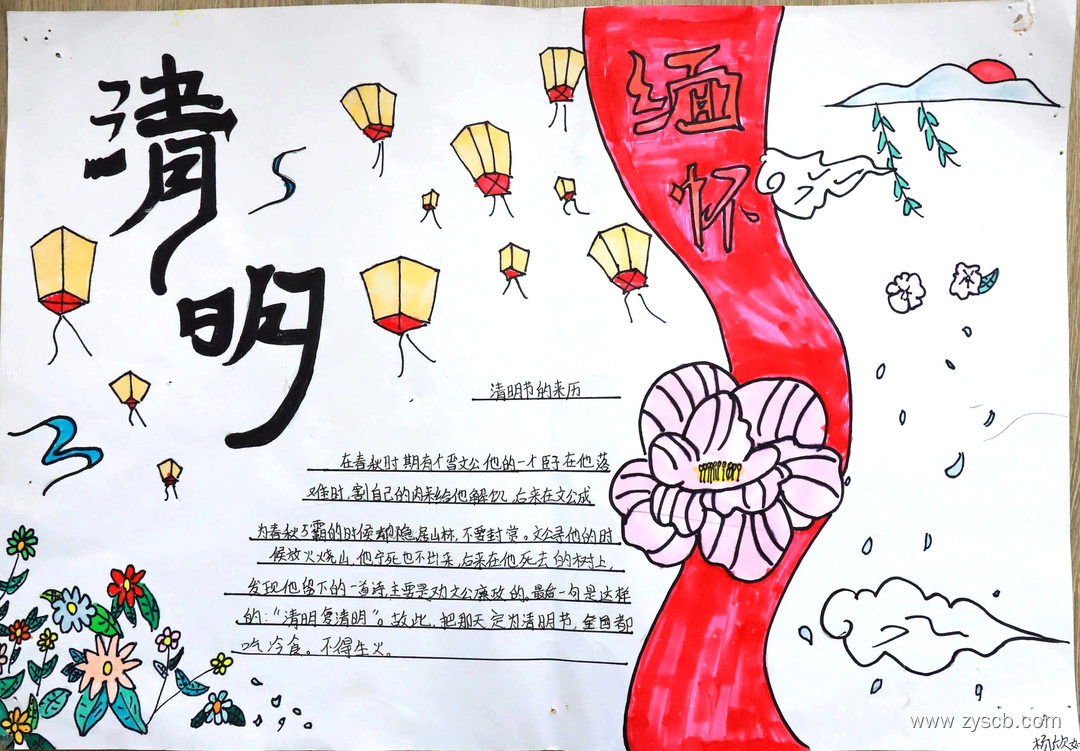 清明
缅怀
清明节的来历
在春秋时期有个晋文公他的一个臣子在他落
难时,割自己的肉来给他解饥,后来在文公成
为春秋5霸的时候却隐居山林,不要封赏。文公寻他的时
候放火烧山,他宁死也不出来,后来在他死去的树上,
发现他留下的一首诗,主要是劝文公廉政的,最后一句是这样
的:“清明复清明”。故此,把那天定为清明节,全国都
吃冷食。不得生火。
www.zyscb.com
杨欣